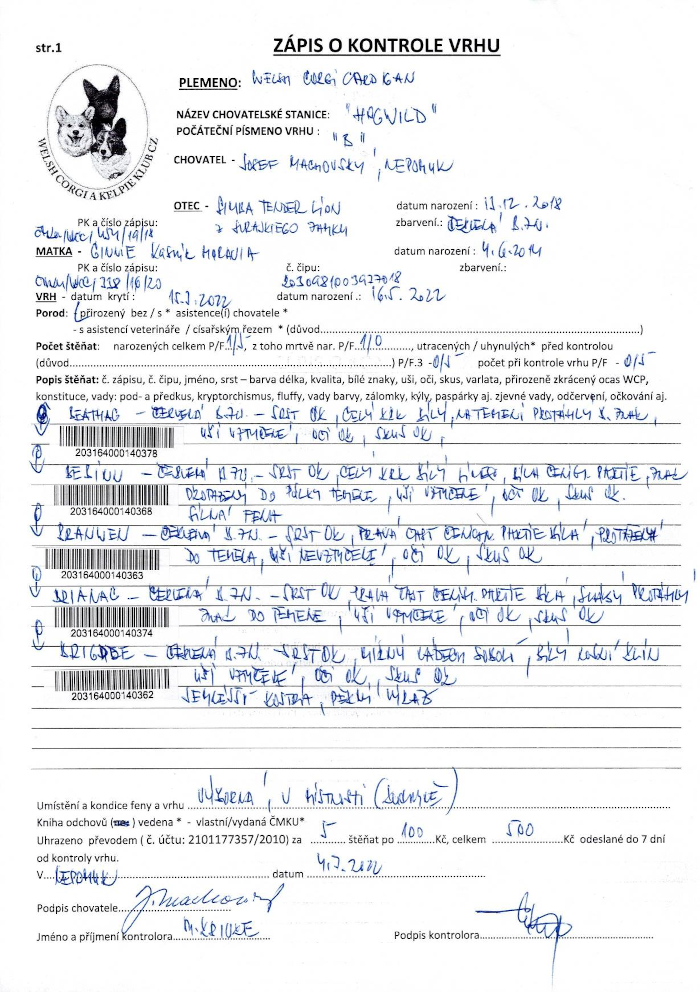 str.1
ZÁPIS O KONTROLE VRHU
WELSH CORGI A KELPIE KLUB CZ
PLEMENO: WELSH CORGI CARDIGAN
NÁZEV CHOVATELSKÉ STANICE: "HAGWILD"
POČÁTEČNÍ PÍSMENO VRHU : "B"
CHOVATEL - JOSEF MACHOVSKÝ, NEPOMUK
OTEC - SIMBA TENDER LION datum narození : 13.12.2018
PK a číslo zápisu: Z JURAJSKIEGO ZAMKU zbarvení.: ČERVENÁ B.ZN.
MATKA - GINNIE KASNIK MORAVIA datum narození : 4.6.2014
PK a číslo zápisu: č. čipu: zbarvení.:
2030981003937018
VRH - datum krytí : 15.3.2022 datum narození .: 16.5.2022
Porod: (přirozený bez / s * asistence(í) chovatele *
- s asistencí veterináře / císařským řezem * (důvod)
Počet štěňat: narozených celkem P/F 1/5, z toho mrtvě nar. P/F. 1/0, utracených / uhynulých* před kontrolou
(důvod) P/F.3 -0/5 počet při kontrole vrhu P/F - 0/5
Popis štěňat: č. zápisu, č. čipu, jméno, srst – barva délka, kvalita, bílé znaky, uši, oči, skus, varlata, přirozeně zkrácený ocas WCP,
konstituce, vady: pod- a předkus, kryptorchismus, fluffy, vady barvy, zálomky, kýly, paspárky aj. zjevné vady, odčervení, očkování aj.
BEATHAG – ČERVENÁ B.ZN. – SRST OK, CELÝ KRK BÍLÝ, NA TEMENI PROTÁHLÝ B. ZNAK,
UŠI VZTYČENÉ, OČI OK, SKUS OK,
203164000140378
– ČERVENÁ B.ZN. – SRST OK, CELÝ KRK BÍLÝ LÍMEC, BÍLÁ PARTIE, ZNAK
PROTAŽENÝ DO PŮLKY TEMENE, UŠI VZTYČENÉ, OČI OK, SKUS OK.
203164000140368
SILNÁ FENA
BRANWEN – ČERVENÁ B.ZN. – SRST OK, PRAVÁ ČÁST PARTIE BÍLÁ, PROTAŽENÁ
DO TEMENA, UŠI NEVZTYČENÉ, OČI OK, SKUS OK
203164000140363
BRIANAG – ČERVENÁ B.ZN. – SRST OK, PRAVÁ ČÁST PARTIE BÍLÁ, PROTÁHLÝ
ZNAK DO TEMENE, UŠI VZTYČENÉ, OČI OK, SKUS OK
203164000140374
BRIGDE – ČERVENÁ B.ZN. – SRST OK, MÍRNÝ NÁDECH SOBOLÍ, BÍLÝ NOSNÍ KLÍN
UŠI VZTYČENÉ, OČI OK, SKUS OK
203164000140362
JEMNĚJŠÍ KOSTRA, PĚKNÝ VÝRAZ
Umístění a kondice feny a vrhu VÝBORNÁ, V MÍSTNOSTI
Kniha odchovů vedena * - vlastní/vydaná ČMKU*
Uhrazeno převodem ( č. účtu: 2101177357/2010) za 5 štěňat po 100 Kč, celkem 500 Kč odeslané do 7 dní
od kontroly vrhu.
V NEPOMUK datum 4.7.2022
Podpis chovatele
Jméno a příjmení kontrolora M. KRINKE Podpis kontrolora